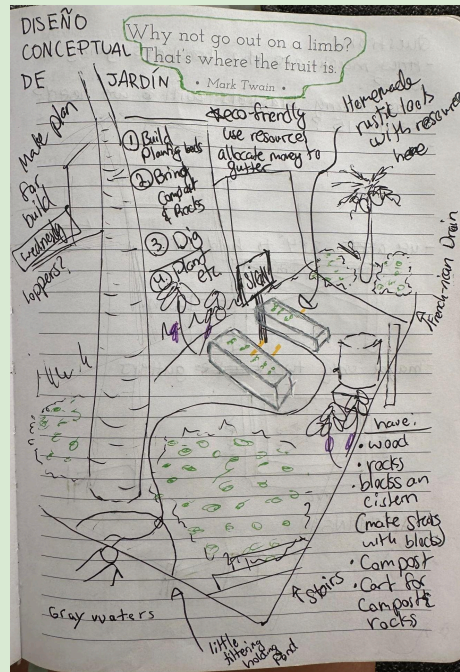 DISEÑO
CONCEPTUAL
DE JARDÍN
Why not go out on a limb?
That's where the fruit is.
• Mark Twain •
Make plan
for
build
wednesday
loppers?
① Build
Planting beds
② Bring
Compost
& Rocks
③ Dig
④ Plant
etc
eco-friendly
use resources
allocate money to
gutter
Homemade
rustic looks
with resources
here
SIGN
French Drain
have.
• wood
• rocks
• blocks on
cistern
(make steps
with blocks)
• Compost
• Cart for
compost &
rocks
stairs
Gray waters
little
filtering
holding
pond